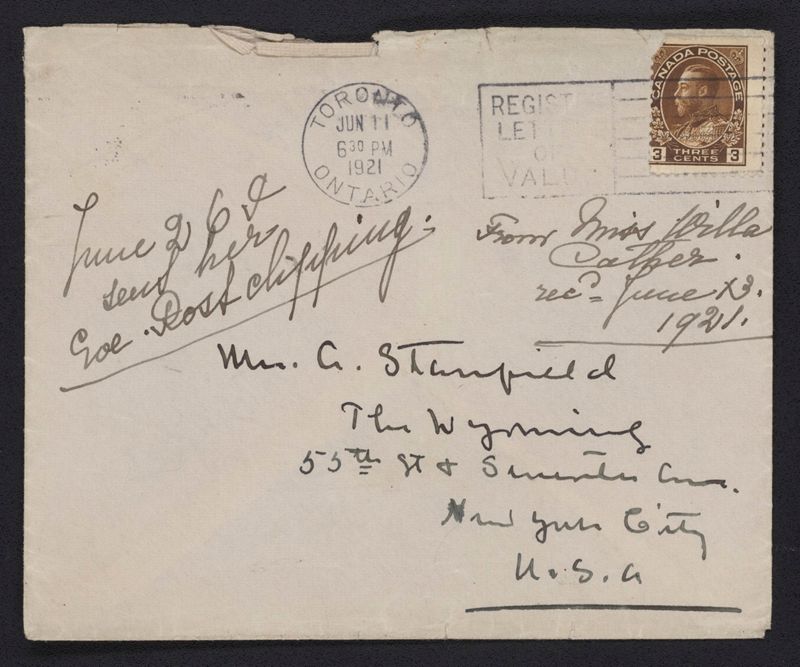 TORONTO
JUN 11
6 30 PM
1921
ONTARIO
REGIST
LET
O
VALU
CANADA POSTAGE
3 THREE CENTS 3
June 26
send her
Eve. Post clipping.
From Miss Willa
Cather.
rec'd June 13.
1921.
Mrs. G. Stanfield
The Wyoming
55th St & Seventh Ave.
New York City
U.S.A